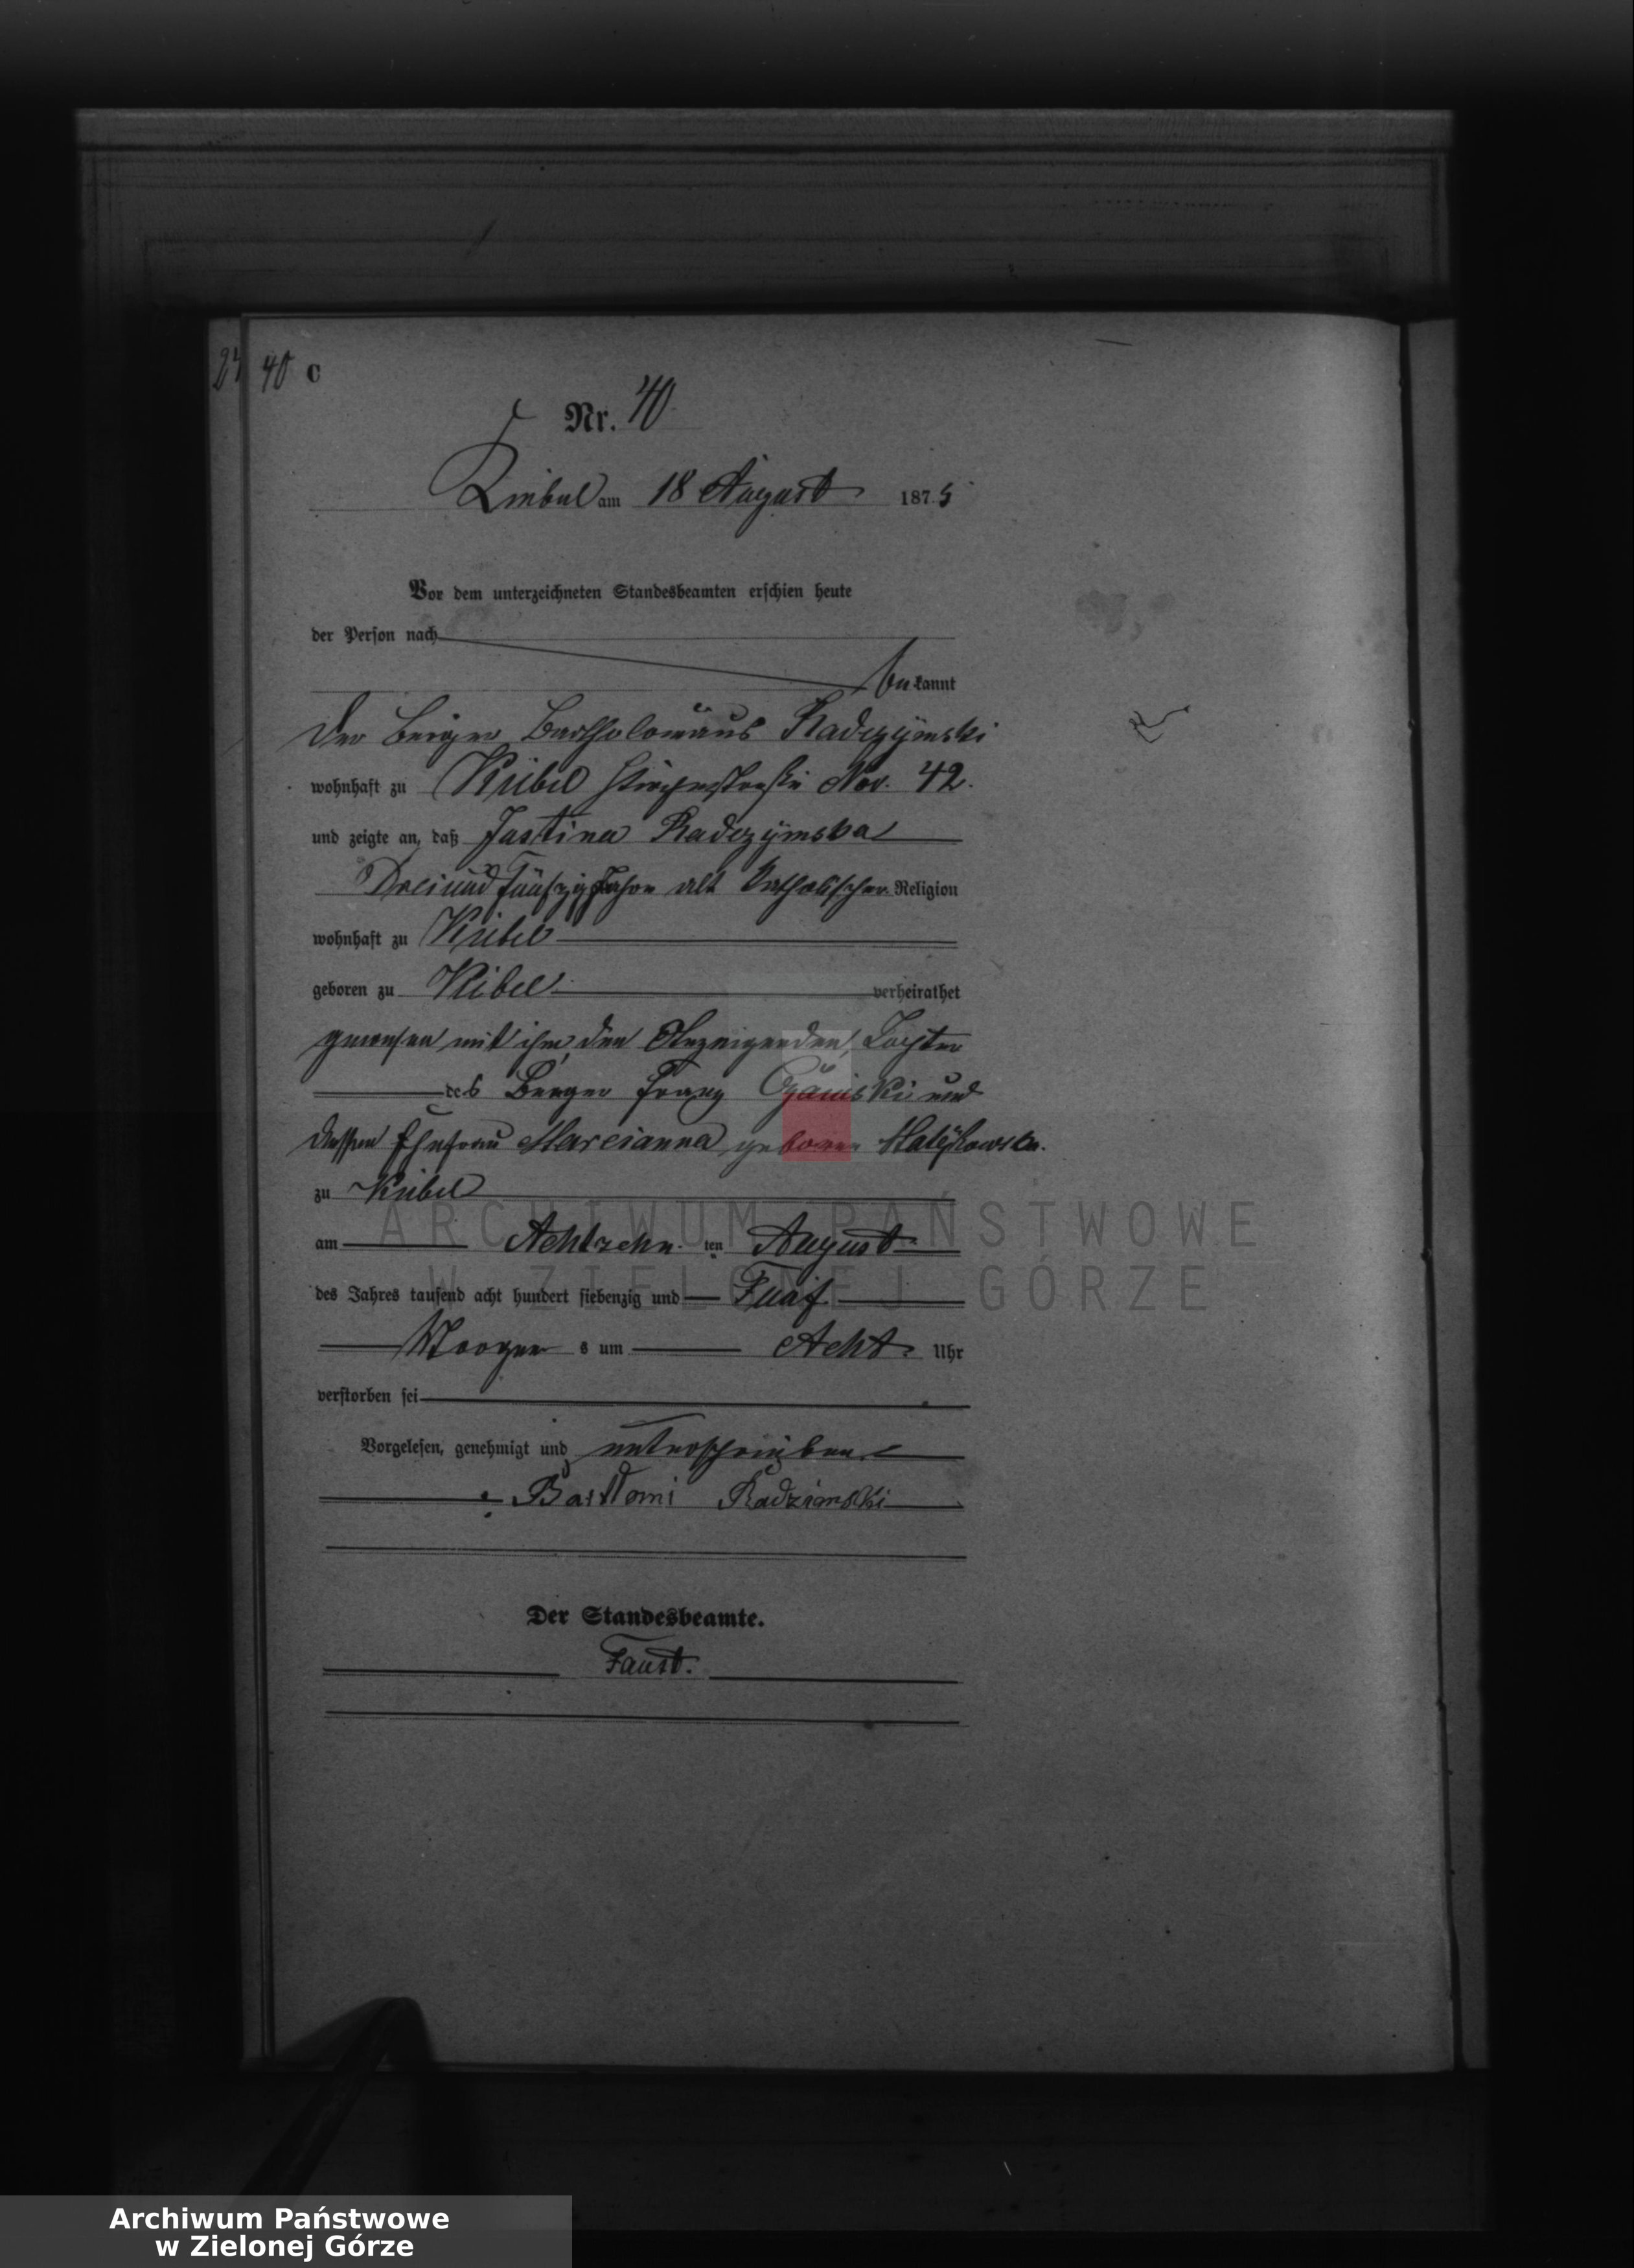 40 C
Nr. 40
Kiebel am 18 August 1875
Vor dem unterzeichneten Standesbeamten erschien heute
der Person nach
bekannt
Der Bürger Bartholomäus Radczÿmski
wohnhaft zu Kiebel Nro. 42.
und zeigte an, daß Justina Radczÿmska
Dreiundfünfzig Jahre alt katholischer Religion
wohnhaft zu Kiebel
geboren zu Kiebel verheirathet
gewesen mit ihm, den Anzeigenden, Tochter
des Bürger Franz und
dessen Ehefrau Marcianna geborene
zu Kiebel
am Achtzehn ten August
des Jahres tausend acht hundert siebenzig und Fünf
Morgen s um Acht Uhr
verstorben sei
Vorgelesen, genehmigt und unterschrieben
Bartłomi Radzimski
Der Standesbeamte.
Faust.
ARCHIWUM PAŃSTWOWE
W ZIELONEJ GÓRZE
Archiwum Państwowe
w Zielonej Górze